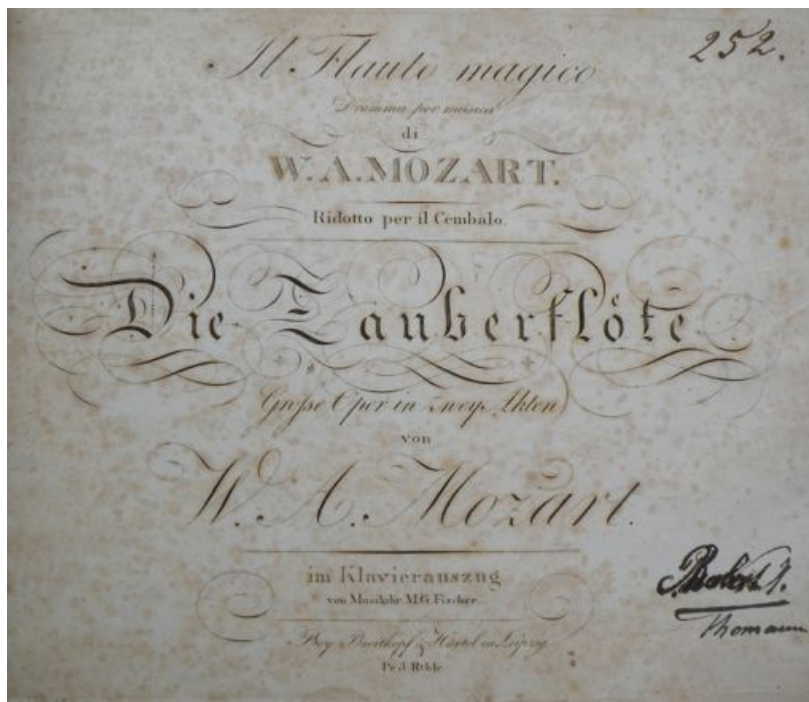 252.
Il Flauto magico
Dramma per musica
di
W. A. MOZART.
Ridotto per il Cembalo.
Die Zauberflöte
Große Oper in zwey Akten
von
W. A. Mozart.
im Klavierauszug
von Musikdir. M.G. Fischer
Bey Breitkopf & Härtel in Leipzig
Robert J.
Thomann